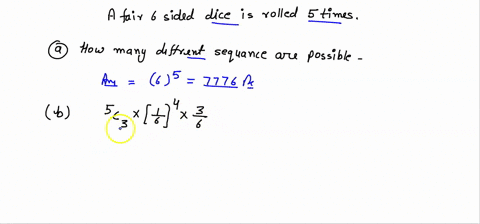 A fair 6 sided dice is rolled 5 times.
(a) How many diffrent sequance are possible -
Ans = (6)^5 = 7776 As
(b) ^5C_3 × [1/6]^4 × 3/6